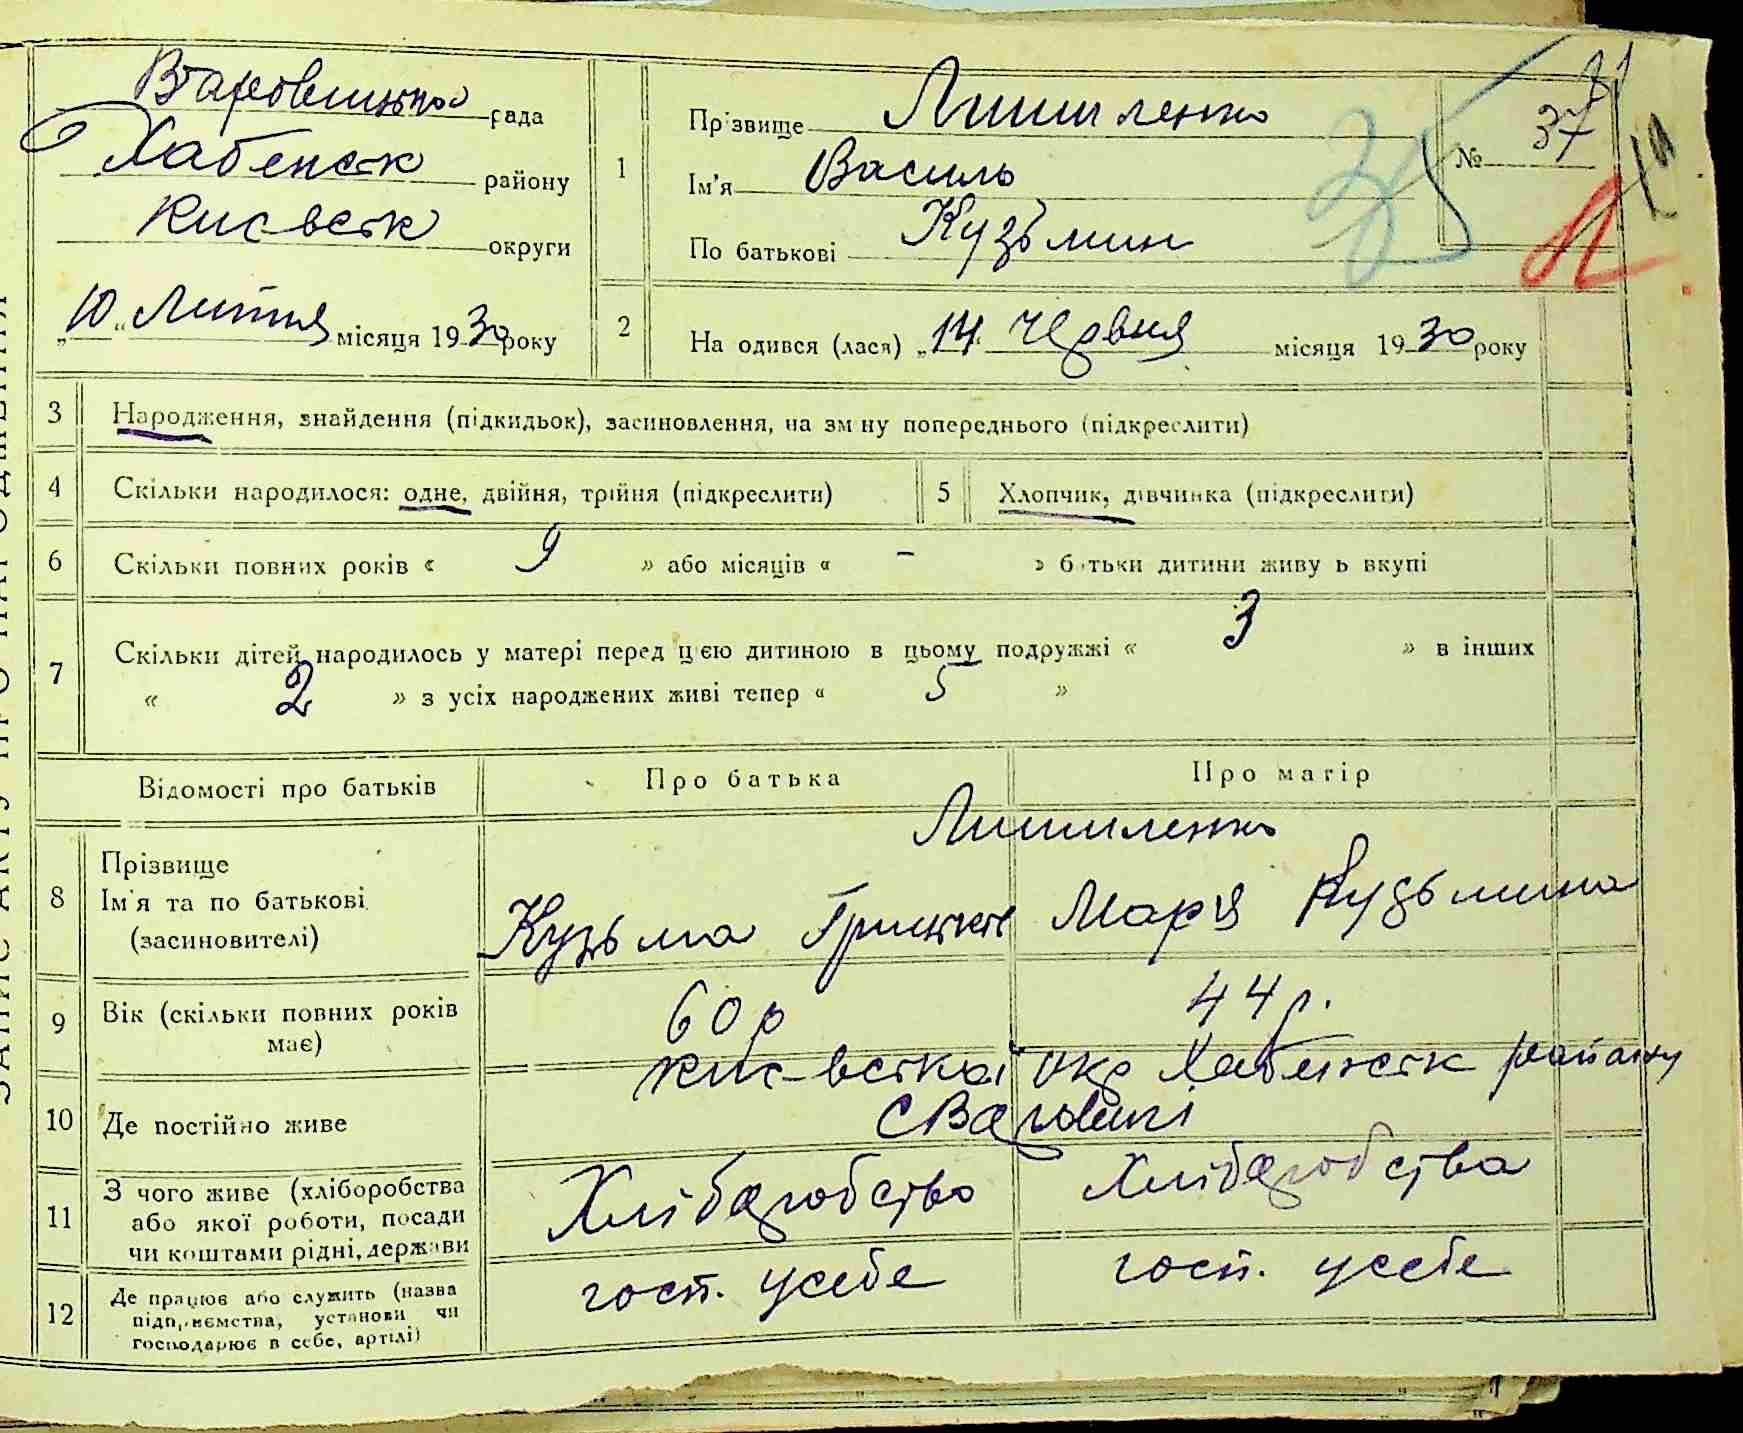 рада
Хабенськ району
Києвськ округи
„10“ Липня місяця 1930 року
1
Прізвище Лишиленко
Ім'я Василь
По батькові Кузьмин
№ 37
2
Народився (лася) „14“ червня місяця 1930 року
3 Народження, знайдення (підкидьок), засиновлення, на зміну попереднього (підкреслити)
4 Скільки народилося: одне, двійня, трійня (підкреслити)
5 Хлопчик, дівчинка (підкреслити)
6 Скільки повних років « 9 » або місяців « – » батьки дитини живуть вкупі
7 Скільки дітей народилось у матері перед цією дитиною в цьому подружжі « 3 » в інших
« 2 » з усіх народжених живі тепер « 5 »
Відомості про батьків
Про батька
Про матір
8
Прізвище
Ім'я та по батькові
(засиновителі)
Лишиленко
Кузьма
Марія Кузьмина
9
Вік (скільки повних років
має)
60 р
44 р.
10 Де постійно живе
Києвської окр Хабенськ району
с
11
З чого живе (хліборобства
або якої роботи, посади
чи коштами рідні, держави
Хліборобство
Хліборобства
12
Де працює або служить (назва
підприємства, установи чи
господарює в себе, артілі)
госп. усебе
госп. усебе